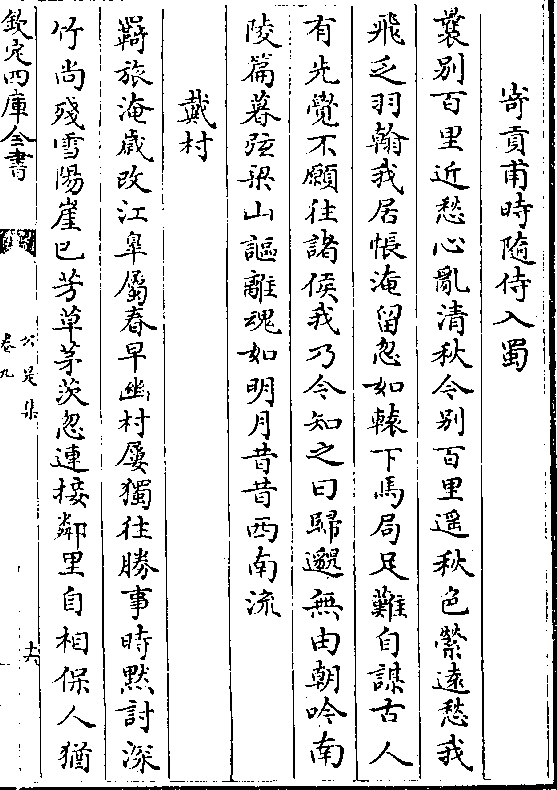 寄貢甫時隨侍入蜀
曩别百里近愁心亂清秋今别百里遥秋色縈逺愁我
飛乏羽翰我居悵淹留忽如轅下馬局足難自謀古人
有先覺不願往諸侯我乃今知之曰歸邈無由朝吟南
陵篇暮弦梁山謳離魂如明月昔昔西南流
戴村
羇旅淹歳改江臯屬春早幽村屢獨往勝事時黙討深
竹尚殘雪陽崖已芳草茅茨忽連接鄰里自相保人猶
欽定四庫全書
公是集
卷九
十六